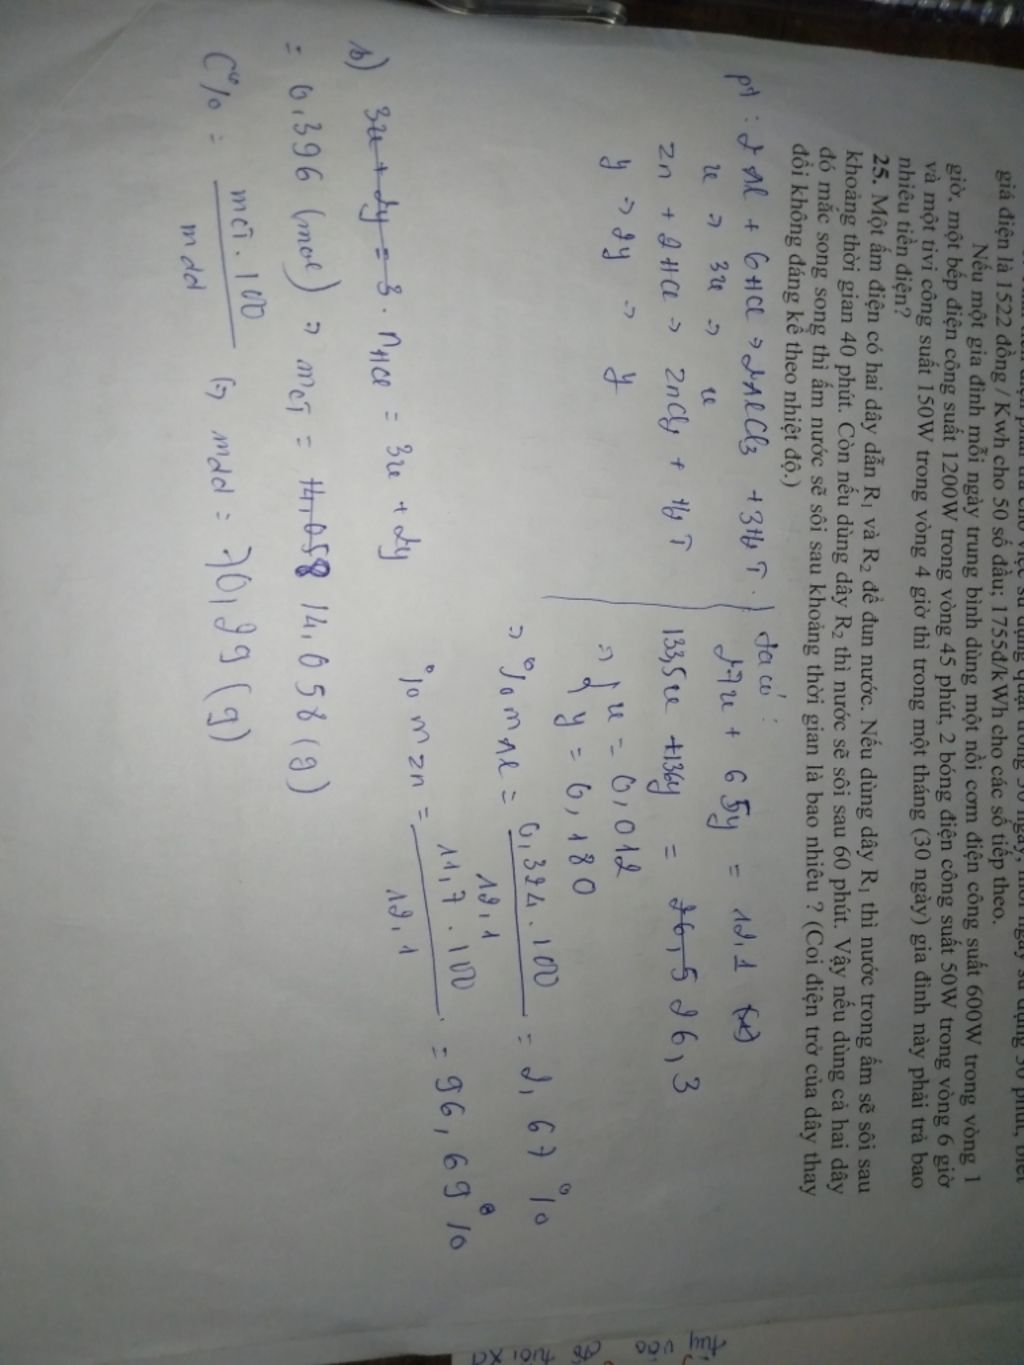 giá điện là 1522 đồng / Kwh cho 50 số đầu; 1755đ/kWh cho các số tiếp theo.
Nếu một gia đình mỗi ngày trung bình dùng một nồi cơm điện công suất 600W trong vòng 1
giờ, một bếp điện công suất 1200W trong vòng 45 phút, 2 bóng điện công suất 50W trong vòng 6 giờ
và một tivi công suất 150W trong vòng 4 giờ thì trong một tháng (30 ngày) gia đình này phải trả bao
nhiêu tiền điện?
25. Một ấm điện có hai dây dẫn R₁ và R₂ để đun nước. Nếu dùng dây R₁ thì nước trong ấm sẽ sôi sau
khoảng thời gian 40 phút. Còn nếu dùng dây R₂ thì nước sẽ sôi sau 60 phút. Vậy nếu dùng cả hai dây
đó mắc song song thì ấm nước sẽ sôi sau khoảng thời gian là bao nhiêu ? (Coi điện trở của dây thay
đổi không đáng kể theo nhiệt độ.)
pt : 2Al + 6HCl → 2AlCl3 + 3H2↑
x → 3x → x
Zn + 2HCl → ZnCl2 + H2↑
y → 2y → y
Ta có :
27x + 65y = 12,1
133,5x + 136y = 26,5 26,3
⇒ { x = 0,012
y = 0,180
⇒ %mAl = 0,324.100 / 12,1 = 2,67%
%mZn = 11,7.100 / 12,1 = 96,69%
b) 3x + 2y = 3. nHCl = 3x + 2y
= 0,396 (mol) ⇒ mCT = 14,058 14,058 (g)
C% = mCT.100 / mdd ⇔ mdd = 70,29 (g)